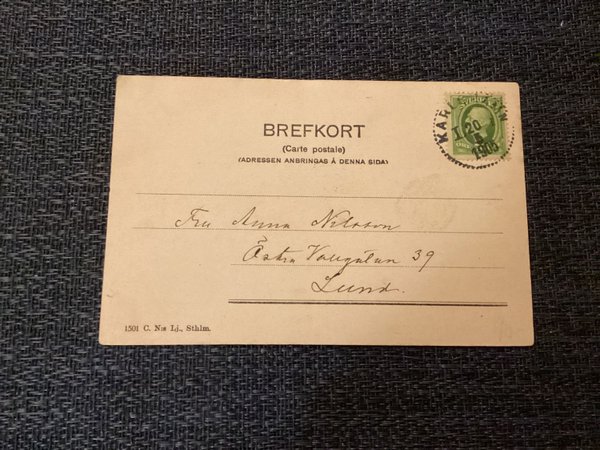 BREFKORT
(Carte postale)
(ADRESSEN ANBRINGAS Å DENNA SIDA)
Fru Anna Nilsson
Östra Vallgatan 39
Lund.
1501 C. N:s Lj., Sthlm.
20
1905